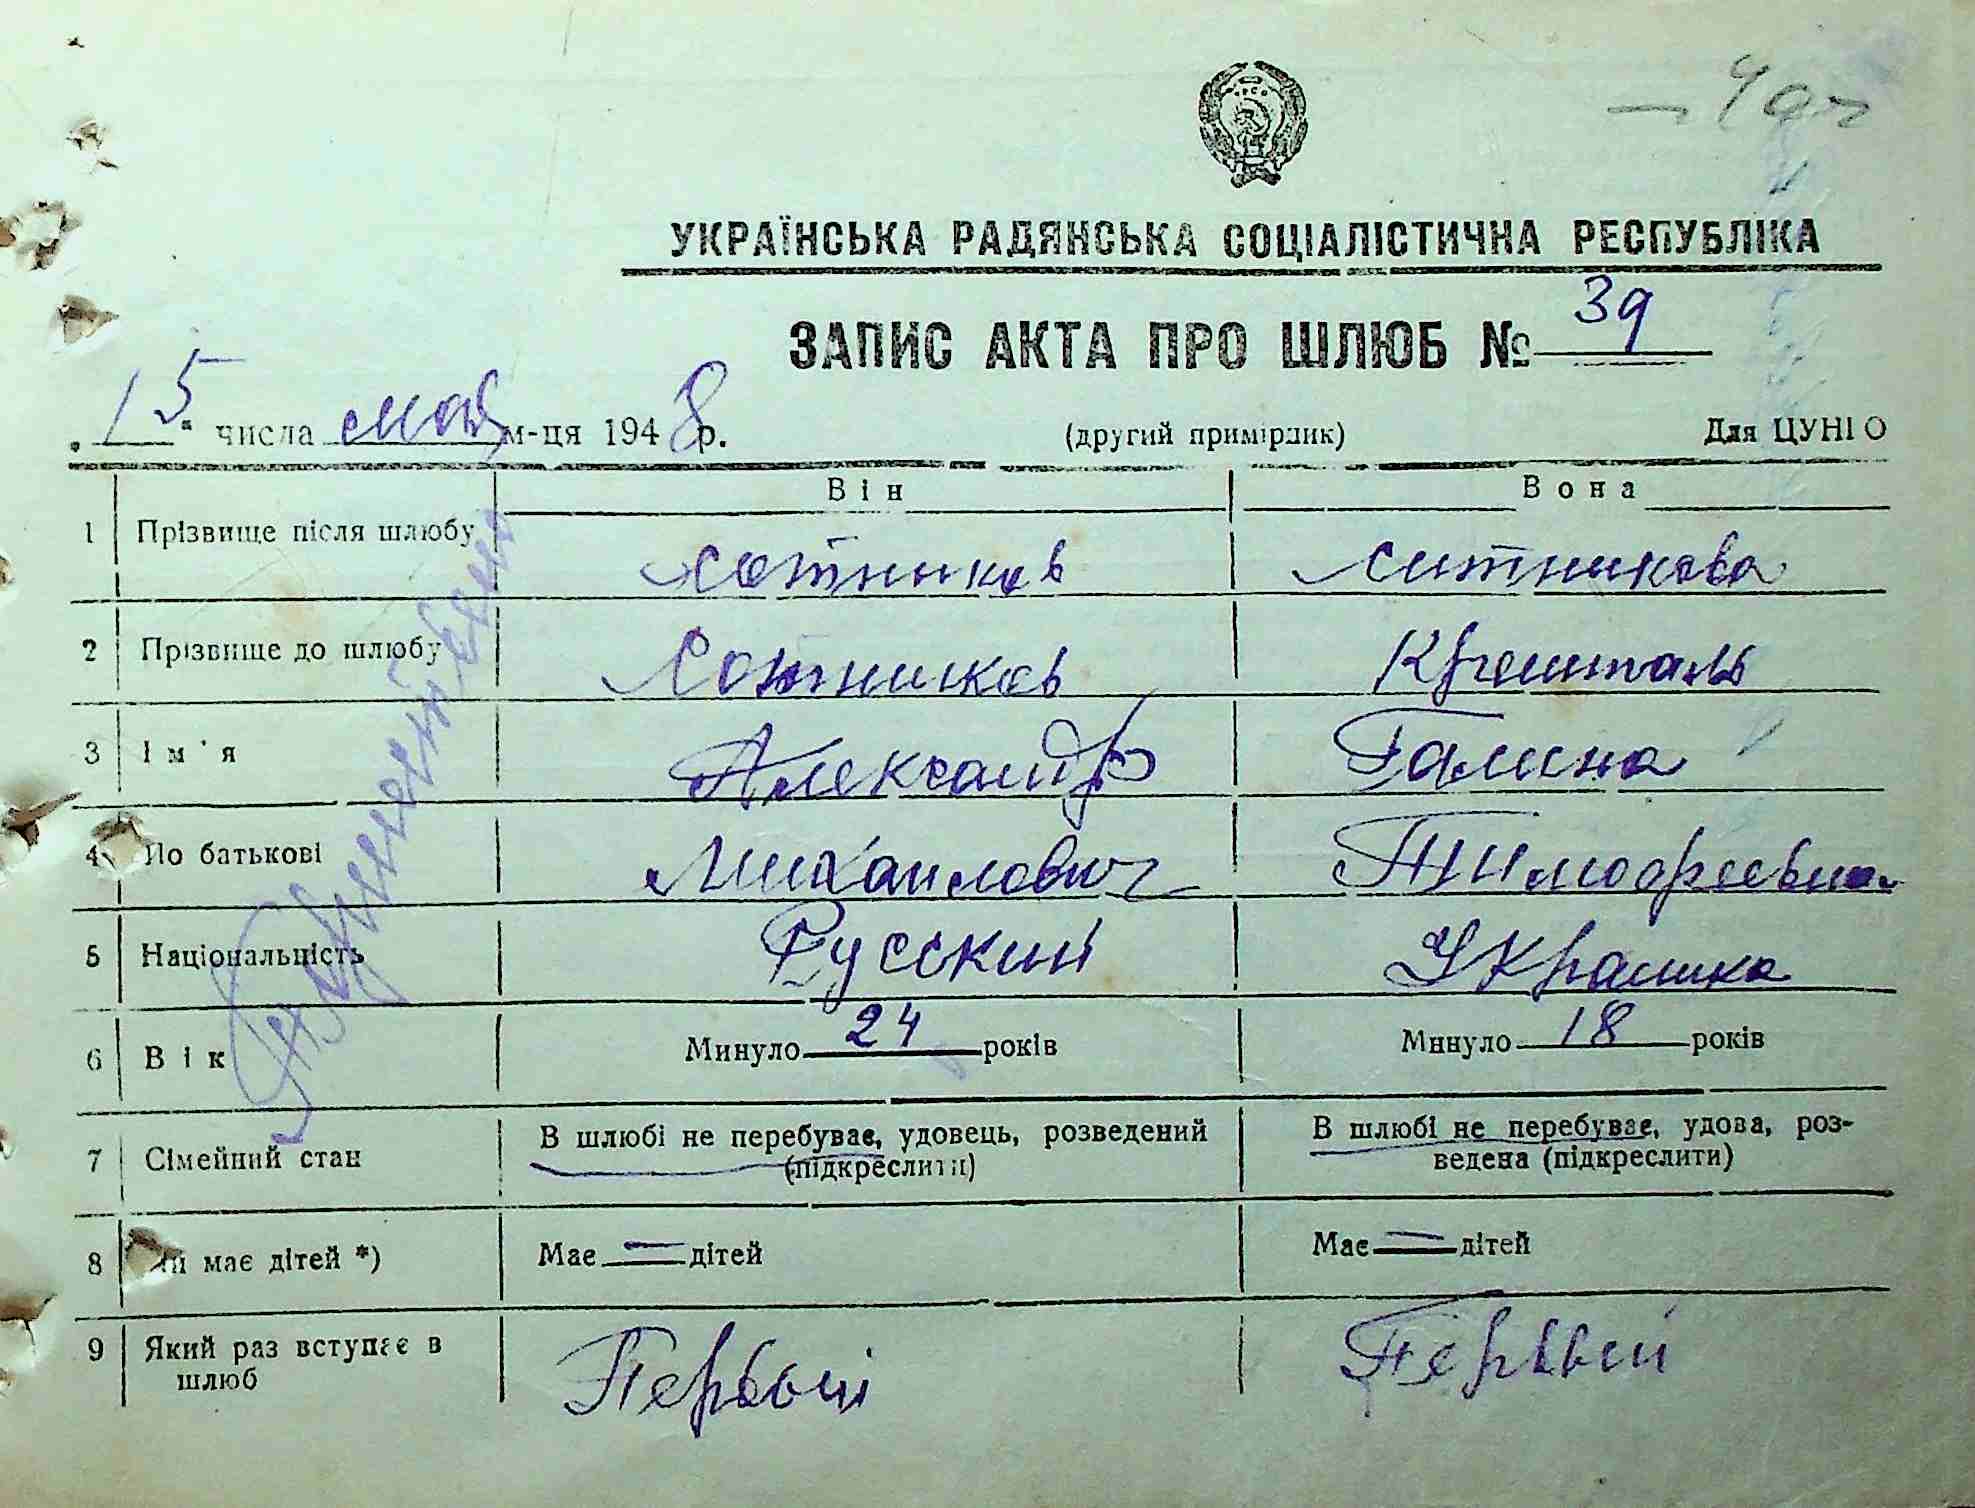 УКРАЇНСЬКА РАДЯНСЬКА СОЦІАЛІСТИЧНА РЕСПУБЛІКА
ЗАПИС АКТА ПРО ШЛЮБ № 39
„15“ числа мая м-ця 1948 р. (другий примірник) Для ЦУНГО
Він Вона
1 Прізвище після шлюбу Сотников Сотникова
2 Прізвище до шлюбу Сотников
3 Ім'я Александр Галина
4 По батькові Михаилович Тимофеевна
5 Національність Русский Украинка
6 Вік Минуло 24 років Минуло 18 років
7 Сімейний стан В шлюбі не перебуває, удовець, розведений (підкреслити) В шлюбі не перебуває, удова, роз-
ведена (підкреслити)
8 Чи має дітей *) Має — дітей Має — дітей
9 Який раз вступає в
шлюб Первый Первый